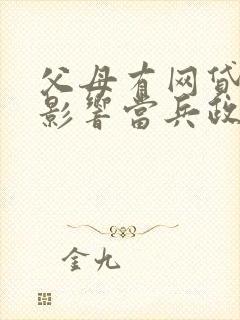 父母有网贷
影響當兵政
金九